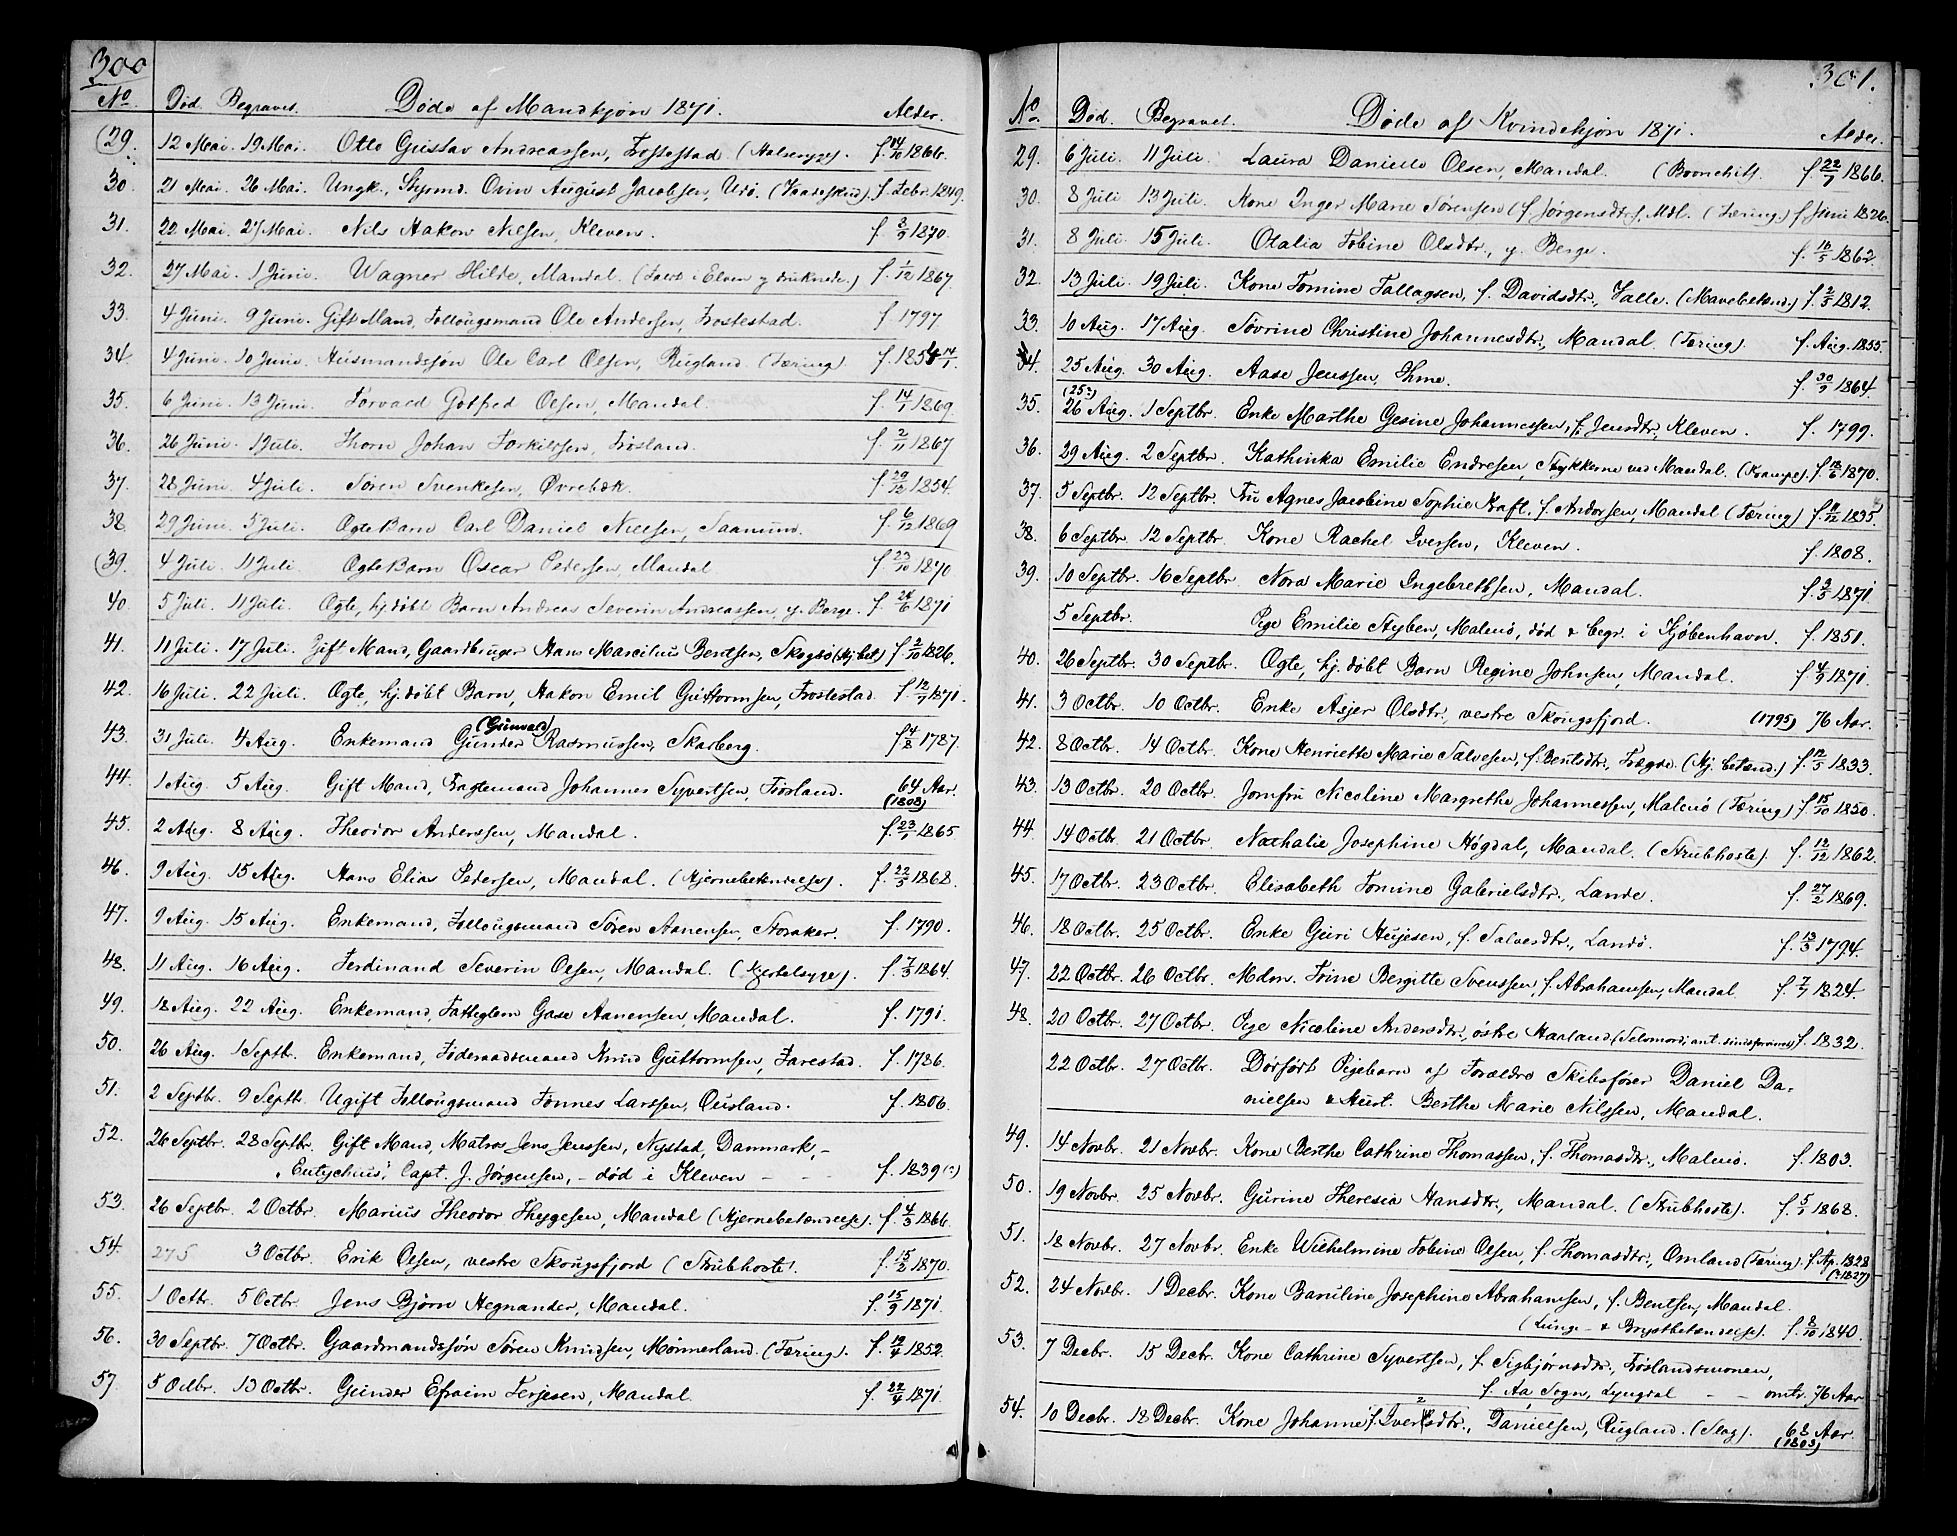 300
No. Død. Begravet. Døde af Mandkjøn 1871. Alder.
29. 12 Mai. 19 Mai. Otto Gustav Andreassen, Frostestad (Halsesyge). f. 14/10 1866.
30. 21 Mai. 26 Mai. Ungk., Styrmd. Ovin August Jacobsen, Udø. f. Febr. 1849.
31. 22 Mai. 27 Mai. Nils Hakon Nilsen, Kleven. f. 3/7 1870.
32. 27 Mai. 1 Juni. Wagner Hilde, Mandal. (Faldt i Elven og druknede.) f. 1/12 1867.
33. 4 Juni. 9 Juni. Gift Mand, Follougsmand Ole Andersen, Frostestad. f. 1797.
34. 4 Juni. 10 Juni. Husmandssøn Ole Carl Olsen, Rugland. (Tæring). f. 1854 14/1.
35. 6 Juni. 13 Juni. Torvald Gotfred Olsen, Mandal. f. 14/1 1869.
36. 26 Juni. 1 Juli. Thorn Johan Torkildsen, Frøsland. f. 2/11 1867
37. 28 Juni. 4 Juli. Søren Svenkesen, Øvrebæk. f. 29/12 1854.
38. 29 Juni. 5 Juli. Ægte Barn Carl Daniel Nielsen, Saanum. f. 6/12 1869
39. 4 Juli. 11 Juli. Ægte Barn Oscar Pedersen, Mandal f. 23/10 1870.
40. 5 Juli. 11 Juli. Ægte, hj.døbt Barn Andreas Severin Andreassen, y. Berge. f. 24/6 1871
41. 11 Juli. 17 Juli. Gift Mand, Gaardbruger Hans Marcelius Bentsen, Skogsø f. 2/10 1826.
42. 16 Juli. 22 Juli. Ægte, hj.døbt Barn, Hakon Emil Guttormsen, Frostestad. f. 12/7 1871.
43. 31 Juli. 4 Aug. Enkemand Gunder (Gunvald) Rasmussen, Skarberg. f. 4/8 1787.
44. 1 Aug. 5 Aug. Gift Mand, Fragtemand Johannes Syvertsen, Frøsland. 64 Aar.
(1808)
45. 2 Aug. 8 Aug. Theodor Andersen, Mandal. f. 23/1 1865.
46. 9 Aug. 15 Aug. Hans Elias Pedersen, Mandal. (Hjernebetændelse). f. 22/5 1868.
47. 9 Aug. 15 Aug. Enkemand, Follougsmand Søren Aanensen, Noraker. f. 1790.
48. 11 Aug. 16 Aug. Ferdinand Severin Olsen, Mandal. f. 7/3 1864.
49. 18 Aug. 22 Aug. Enkemand, Fattiglem Gase Aanensen, Mandal. f. 1791.
50. 26 Aug. 1 Septb. Enkemand, Føderaadsmand Knud Guttormsen, Farestad. f. 1786.
51. 2 Septbr. 9 Septb. Ugift Follougsmand Tønnes Larssen, Ousland. f. 1806.
52. 26 Septbr. 28 Septbr. Gift Mand, Matros Jens Jenssen, Nystad, Danmark, -
"Eutychius", Capt. J. Jørgensen, - død i Kleven - - - f. 1839 (?)
53. 26 Septbr. 2 Octbr. Marius Theodor Thygesen, Mandal (Hjernebetændelse). f. 4/3 1866.
54. 27 S 3 Octbr. Erik Olsen, vestre Skougsfjord (Strubhoste). f. 15/2 1870.
55. 1 Octbr. 5 Octbr. Jens Bjørn Hegnander, Mandal. f. 15/9 1871.
56. 30 Septbr. 7 Octbr. Gaardmandssøn Søren Knudsen, Mønnerland. (Tæring). f. 19/4 1852.
57. 5 Octbr. 13 Octbr. Gunder Efraim Terjesen, Mandal. f. 22/4 1871.
301.
No. Død. Begravet. Døde af Kvindekjøn 1871. Alder.
29. 6 Juli. 11 Juli. Laura Danielle Olsen, Mandal. (Bronchit). f. 22/7 1866.
30. 8 Juli 13 Juli. Kone Inger Marie Sørensen (f. Jørgensdtr.), Mdl. (Tæring.) f. Juni 1826.
31. 8 Juli. 15 Juli. Otalia Tobine Olsdtr., y. Berge. f. 16/5 1862.
32. 13 Juli. 19 Juli. Kone Tomine Tallagsen, f. Davidsdtr., Valle. (Mavebetænd.) f. 2/5 1812.
33. 10 Aug. 17 Aug. Sovrine Christine Johannesdtr., Mandal. (Tæring). f. Aug. 1855.
34. 25 Aug. 30 Aug. Aase Jenssen, Ihme. f. 30/9 1864.
35. (25?) 26 Aug. 1 Septbr. Enke Marthe Gesine Johannessen, f. Jensdtr., Kleven. f. 1799.
36. 29 Aug. 2 Septbr. Kathinka Emilie Endresen, Stykkerne ved Mandal. (Krampe). f. 18/6 1870.
37. 5 Septbr. 12 Septbr. Fru Agnes Jacobine Sophie Kraft, f. Andersen, Mandal (Tæring) f. 9/12 1835.
38. 6 Septbr. 12 Septbr. Kone Rachel Iversen, Kleven. f. 1808.
39. 10 Septbr. 16 Septbr. Nora Marie Ingebrethsen, Mandal. f. 3/3 1871.
5 Septbr. Pige Emilie Styben, Malmø, død & begr. i Kjøbenhavn. f. 1851.
40. 26 Septbr. 30 Septbr. Ægte, hj.døbt Barn Regine Johnsen, Mandal. f. 4/9 1871.
41. 3 Octbr. 10 Octbr. Enke Asjer Olsdtr., vestre Skougsfjord. (1795) 76 Aar.
42. 8 Octbr. 14 Octbr. Kone Henriette Marie Salvesen, f. Bentsdtr., Tregde. (Hj. betænd.) f. 12/5 1833.
43. 13 Octbr. 20 Octbr. Jomfru Nicoline Margrethe Johannessen, Malmø (Tæring) f. 15/10 1850.
44. 14 Octbr. 21 Octbr. Nathalie Josephine Høgdal, Mandal. (Strubhoste). f. 12/12 1862.
45. 17 Octbr. 23 Octbr. Elisabeth Tomine Gabrielsdtr., Lande. f. 27/2 1869.
46. 18 Octbr. 25 Octbr. Enke Guri Hujesen, f. Salvesdtr., Landø. f. 13/3 1794.
47. 22 Octbr. 26 Octbr. Mdm. Trine Bergitte Svenssen, f. Abrahamsen, Mandal. f. 7/7 1824.
48. 20 Octbr. 27 Octbr. Pige Nicoline Andersdtr., østre Haaland (Selvmord; ant. sindsforvirret) f. 1832.
22 Octbr. 27 Octbr. Dødfødt Pigebarn af Forældre Skibsfører Daniel Da-
nielsen & Hust. Berthe Marie Nilssen, Mandal.
49. 14 Novbr. 21 Novbr. Kone Berthe Cathrine Thomassen, f. Thomasdtr., Malmø. f. 1803.
50. 19 Novbr. 25 Novbr. Gurine Theresia Hansdtr., Mandal. (Strubhoste). f. 5/1 1868.
51. 18 Novbr. 27 Novbr. Enke Wilhelmine Tobine Olsen, f. Thomasdtr., Omland (Tæring). f. Ap. 1828
(?1827)
52. 24 Novbr. 1 Decbr. Kone Bauline Josephine Abrahamsen, f. Bentsen, Mandal.
(Lunge- & Brystbetændelse). f. 8/10 1840.
53. 7 Decbr. 15 Decbr. Kone Cathrine Syvertsen, f. Sigbjørnsdtr., Frøslandsmonen,
f. Aa Sogn, Lyngdal - - omtr. 76 Aar
54. 10 Decbr. 18 Decbr. Kone Johanne f. Iversdtr., Danielsen, Rugland. (Slag). 68 Aar.
(1803)